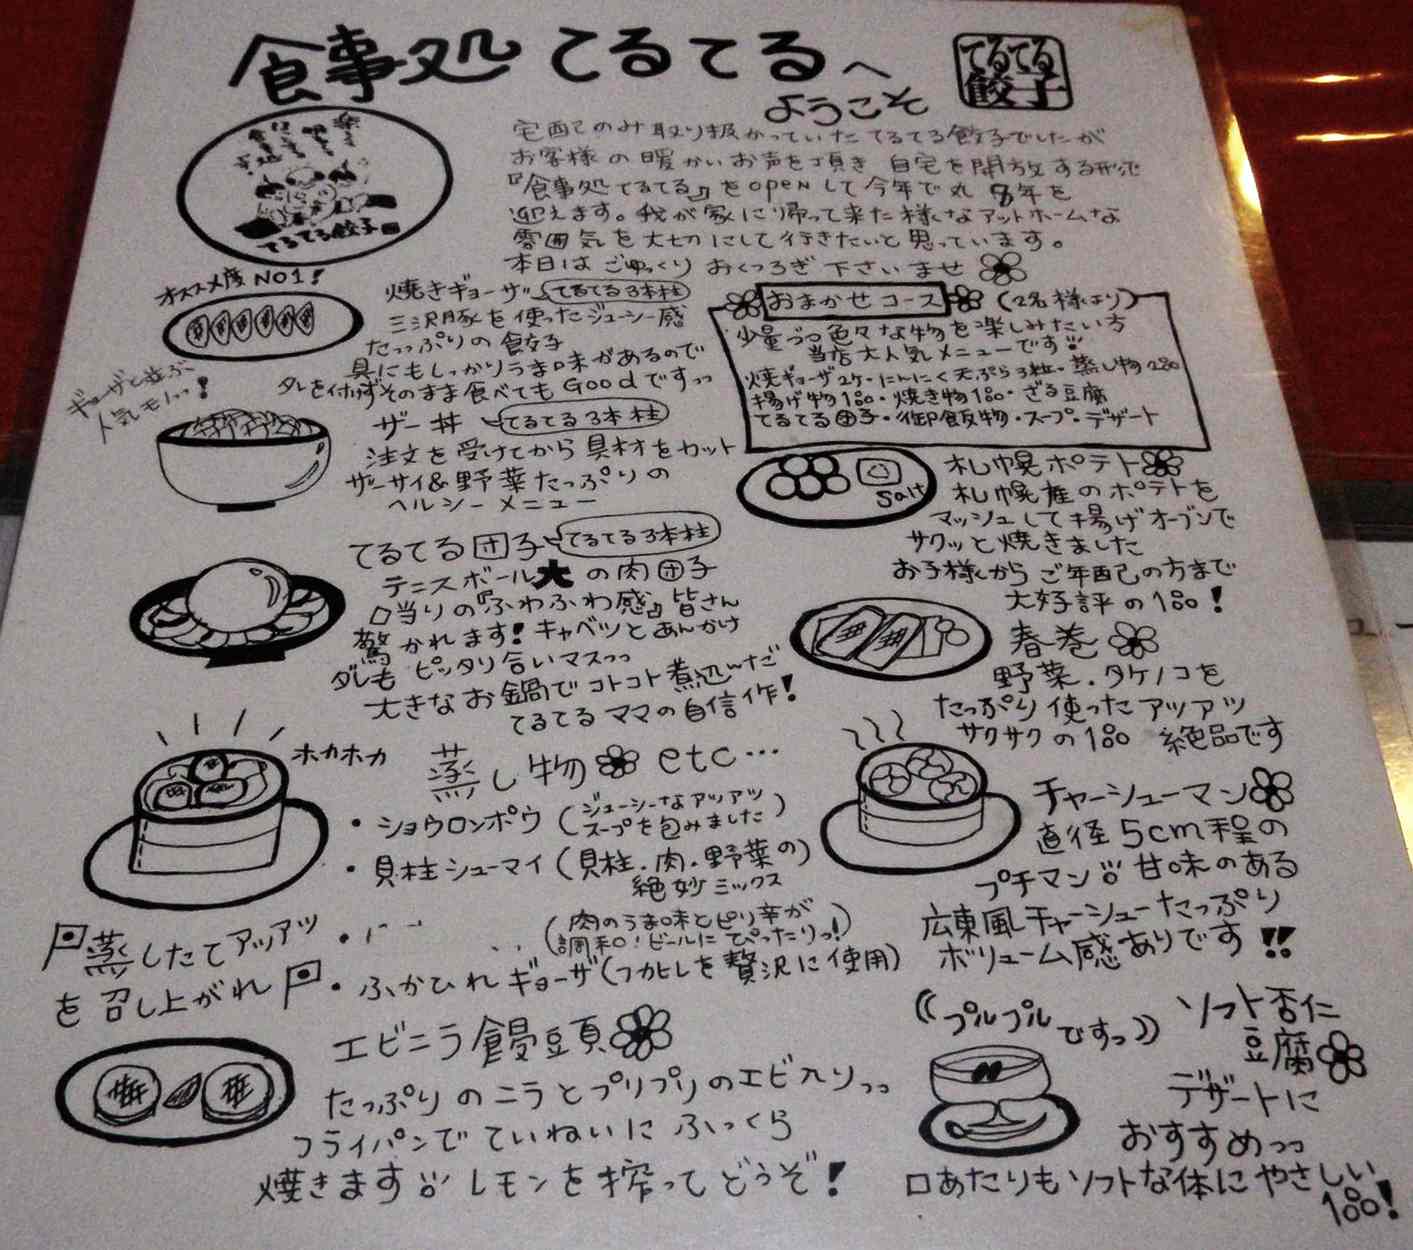 食事処 てるてるへ
ようこそ
てるてる
餃子
宅配のみ取り扱かっていた てるてる餃子でしたが
お客様の暖かいお声を頂き 自宅を開放する形で
『食事処 てるてる』をopenして今年で丸8年を
迎えます。我が家に帰って来た様なアットホームな
雰囲気を大切にして行きたいと思っています。
本日は ごゆっくり おくつろぎ 下さいませ
てるてる餃子
オススメ度 NO1!
焼きギョーザ てるてる3本柱
三沢豚を使ったジューシー感
たっぷりの餃子
具にもしっかりうま味があるので
タレを付けずそのまま食べてもGoodですッっ
ギョーザと並ぶ
人気モノっ!
ザー丼 てるてる3本柱
注文を受けてから具材をカット
ザーサイ&野菜たっぷりの
ヘルシーメニュー
てるてる団子 てるてる3本柱
テニスボール大の肉団子
口当りの『ふわふわ感』皆さん
驚かれます! キャベツとあんかけ
ダレも ピッタリ合いマスっっ
大きなお鍋でコトコト煮込んだ
てるてるママの自信作!
ホカホカ
蒸し物 etc…
・ショウロンポウ (ジューシーなアツアツ
スープを包みました)
・貝柱シューマイ (貝柱.肉.野菜の)
絶妙ミックス
(肉のうま味とピリ辛が
調和!ビールにぴったりっ!)
・ふかひれギョーザ(フカヒレを贅沢に使用)
蒸したてアツアツ
を召し上がれ
エビニラ饅頭
たっぷりのニラとプリプリのエビ入りっっ
フライパンでていねいにふっくら
焼きます レモンを搾ってどうぞ!
おまかせコース (2名様より)
少量づつ色々な物を楽しみたい方
当店大人気メニューです
焼ギョーザ2ケ・にんにく天ぷら3粒・蒸し物2品
揚げ物1品・焼き物1品・ざる豆腐
てるてる団子・御飯物・スープ・デザート
Salt
札幌ポテト
札幌産のポテトを
マッシュして揚げオーブンで
サクッと焼きました
お子様からご年配の方まで
大好評の1品!
春巻
野菜.タケノコを
たっぷり使ったアツアツ
サクサクの1品 絶品です
チャーシューマン
直径5cm程の
プチマン 甘味のある
広東風チャーシューたっぷり
ボリューム感ありです!!
((プルプルですっ))
ソフト杏仁
豆腐
デザートに
おすすめっっ
口あたりもソフトな体にやさしい
1品!